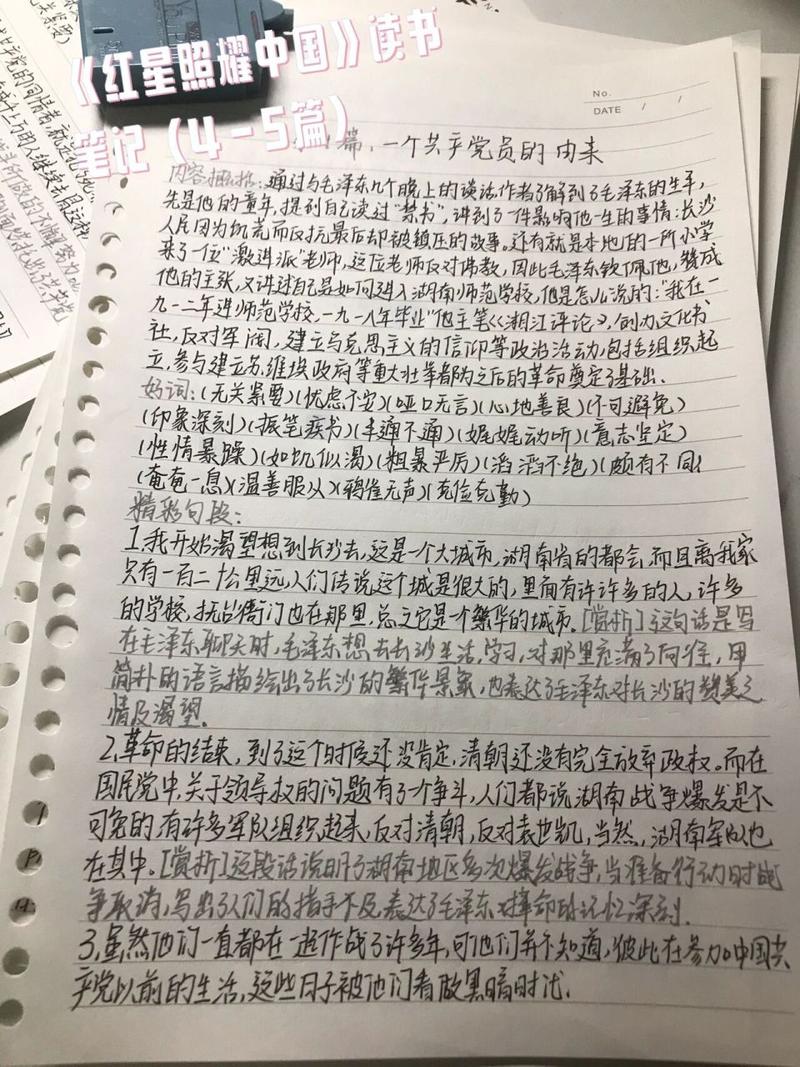 《红星照耀中国》读书
笔记（4-5篇）
No.
DATE / /
篇、一个共产党员的由来
内容概括:通过与毛泽东几个晚上的谈话,作者了解到了毛泽东的生平,
先是他的童年,提到自己读过"禁书",讲到了一件影响他一生的事情:长沙
人民因为饥荒而反抗最后却被镇压的故事。还有就是本地的一所小学
来了一位"激进派"老师,这位老师反对佛教,因此毛泽东钦佩他,赞成
他的主张,又讲过自己是如何进入湖南师范学校,他是怎么说的:"我在一
九一二年进师范学校,一九一八年毕业"他主笔《湘江评论》,创办文化书
社,反对军阀,建立马克思主义的信仰等政治活动,包括组织起
立,参与建立苏维埃政府等重大壮举都为之后的革命奠定了基础.
好词:(无关紧要)(忧虑不安)(哑口无言)(心地善良)(不可避免)
(印象深刻)(振笔疾书)(半通不通)(娓娓动听)(意志坚定)
(性情暴躁)(如饥似渴)(粗暴严厉)(滔滔不绝)(颇有不同)
(奄奄一息)(温善服从)(鸦雀无声)(克俭克勤)
精彩句段:
1.我开始渴望想到长沙去,这是一个大城市,湖南省的都会,而且离我家
只有一百二十公里远,人们传说这个城是很大的,里面有许许多多的人,许多
的学校,抚台衙门也在那里,总之它是个繁华的城市.[赏析]这句话是写
在毛泽东聊天时,毛泽东想去长沙生活,学习,对那里充满了向往,用
简朴的语言描绘出了长沙的繁华景象,也表达了毛泽东对长沙的赞美之
情及渴望.
2.革命的结束,到了这个时候还没肯定,清朝还没有完全放弃政权。而在
国民党中,关于领导权的问题有了个争斗,人们都说湖南战争爆发是不
可免的,有许多军队组织起来,反对清朝,反对袁世凯,当然,湖南军队也
在其中。[赏析]这段话说明了湖南地区多次爆发战争,当准备行动时战
争取消,写出了人们的措手不及,表达了毛泽东对革命的记忆深刻.
3,虽然他们一直都在一起作战了许多年,可他们并不知道,彼此在参加中国共
产党以前的生活,这些日子被他们看做黑暗时代.